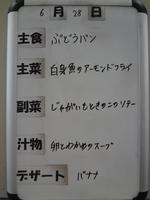 6月28日
主食 ぶどうパン
主菜 白身魚のアーモンドフライ
副菜 じゃがいもときのこのソテー
汁物 卵とわかめのスープ
デザート バナナ